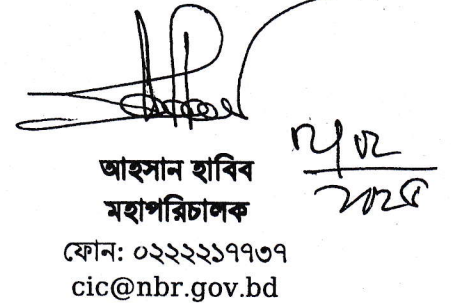 আহসান হাবিব
মহাপরিচালক
ফোন: ০২২২২১৭৭৩৭
cic@nbr.gov.bd